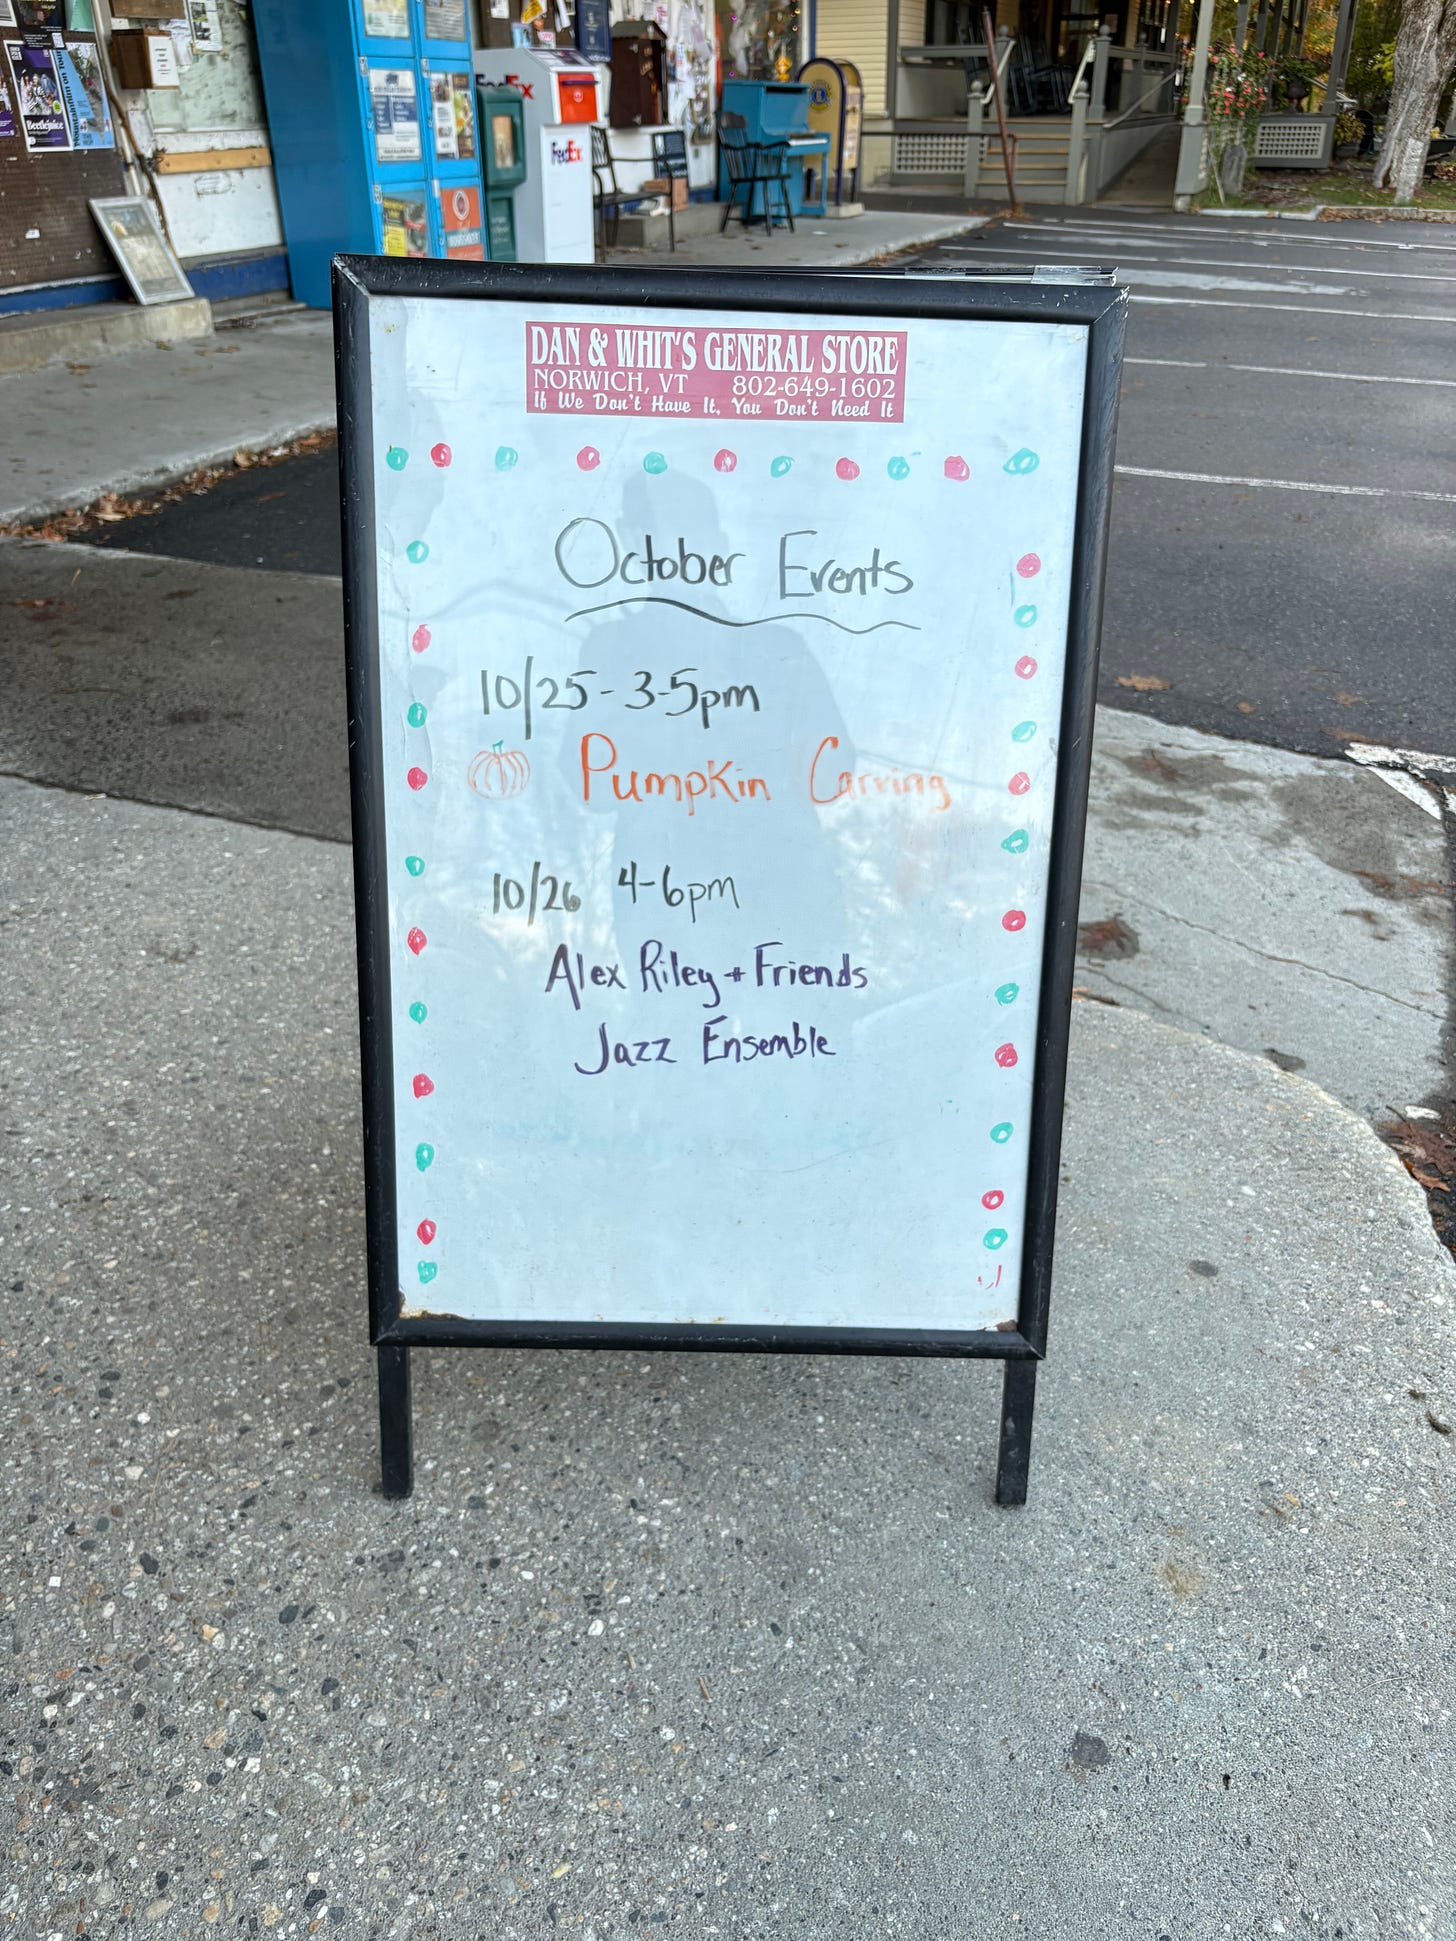 Beetlejuice
FedEx
FedEx
DAN & WHIT'S GENERAL STORE
NORWICH, VT 802-649-1602
If We Don't Have It, You Don't Need It
October Events
10/25 - 3-5pm
Pumpkin Carving
10/26 4-6pm
Alex Riley + Friends
Jazz Ensemble